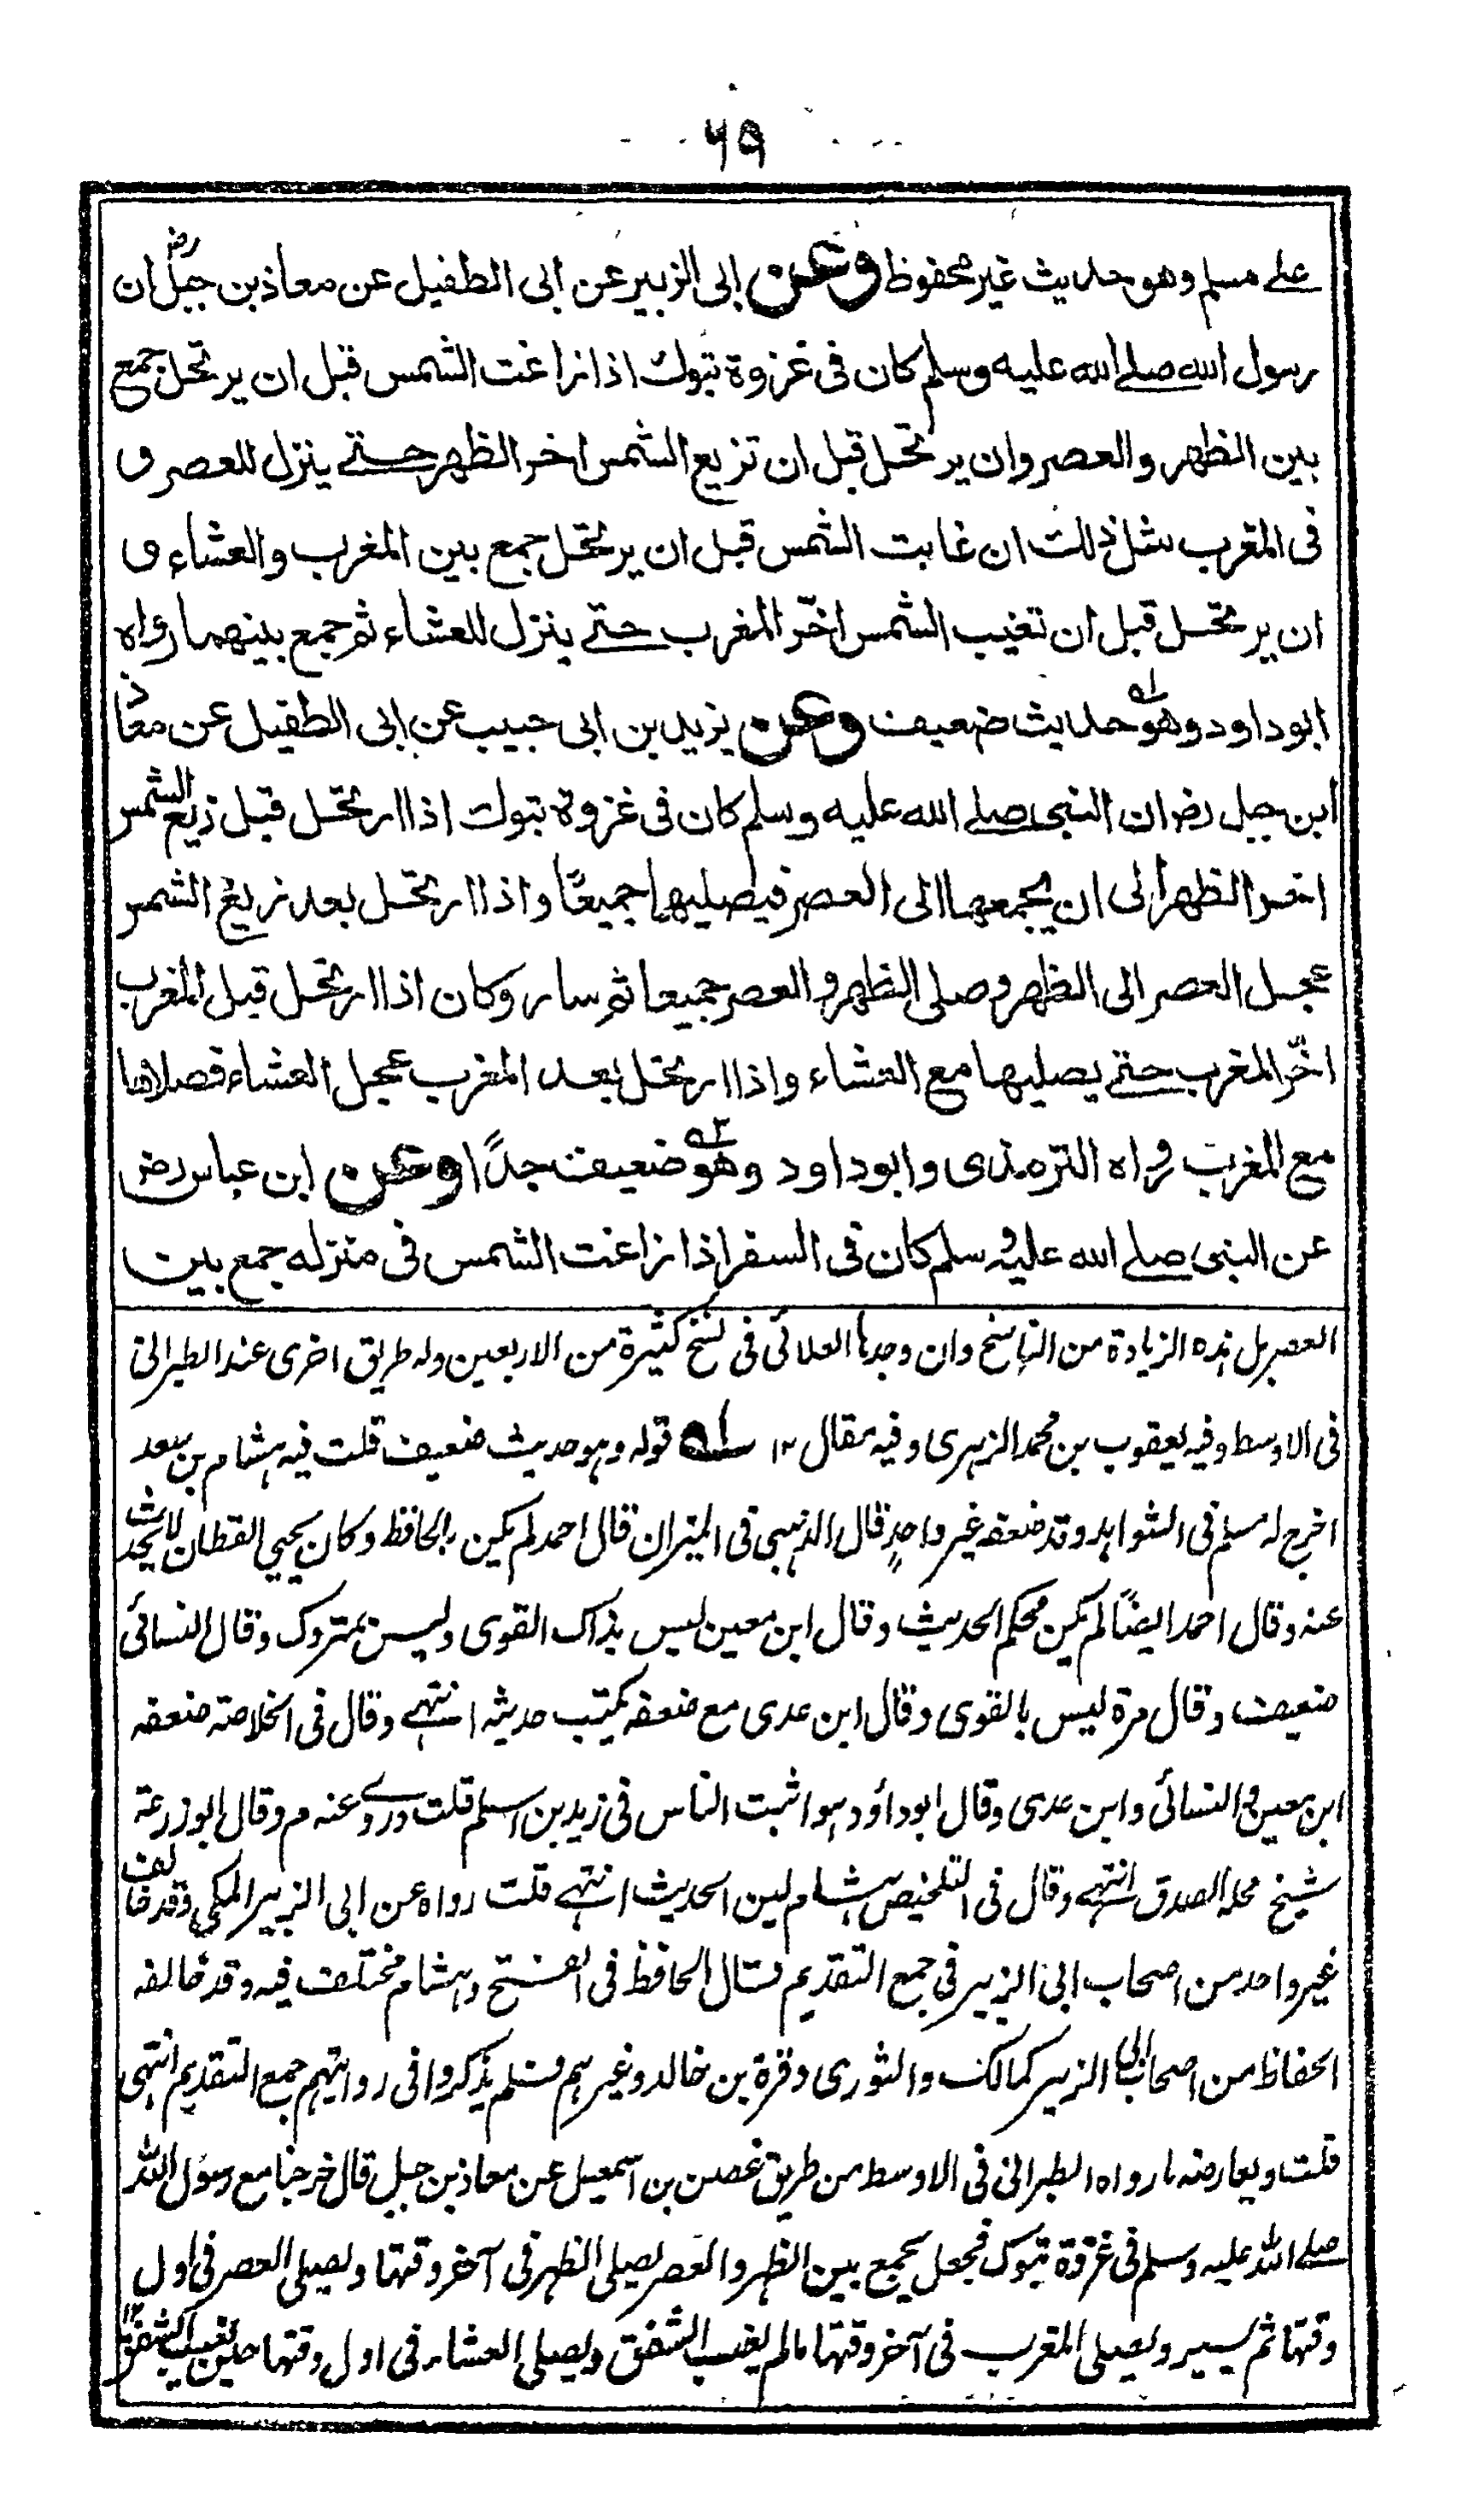 ٦٩
على مسلم وهو حديث غير محفوظ وعن ابى الزبير عن ابى الطفيل عن معاذ بن جبل رض ان
رسول الله صلے الله عليه وسلم كان فى غزوة تبوك اذا زاغت الشمس قبل ان يرتحل جمع
بين الظهر والعصر وان يرتحل قبل ان تزيغ الشمس اخر الظهر حتے ينزل للعصر و
فى المغرب مثل ذلك ان غابت الشمس قبل ان يرتحل جمع بين المغرب والعشاء و
ان يرتحل قبل ان تغيب الشمس اخّر المغرب حتے ينزل للعشاء ثم جمع بينهما رواه
ابوداود وهو ١ـه حديث ضعيف وعن يزيد بن ابى حبيب عن ابى الطفيل عن معاذ
ابن جبل رض ان النبى صلے الله عليه وسلم كان فى غزوة تبوك اذا ارتحل قبل زيغ الشمس
اخر الظهر الى ان يجمعها الى العصر فيصليهما جميعًا واذا ارتحل بعد زيغ الشمس
عجل العصر الى الظهر وصلى الظهر والعصر جميعا ثم سار وكان اذا ارتحل قبل المغرب
اخّر المغرب حتے يصليها مع العشاء واذا ارتحل بعد المغرب عجل العشاء فصلاها
مع المغرب رواه الترمذى وابوداود وهو ٢ـه ضعيف جدًا وعن ابن عباس رض
عن النبى صلے الله عليه وسلم كان فى السفر اذا زاغت الشمس فى منزله جمع بين
العصر بل هذه الزيادة من الناسخ وان وجدها العلائى فى نسخ كثيرة من الاربعين وله طريق اخرى عند الطبرانى
فى الاوسط وفيه يعقوب بن محمد الزهرى وفيه مقال ١٢ ١ـه قوله وهو حديث ضعيف قلت فيه هشام بن سعد
اخرج له مسلم فى الشواهد وقد ضعفه غير واحدٍ قال الذهبى فى الميزان قال احمد لم يكن بالحافظ وكان يحيى القطان لا يحدث
عنه وقال احمد ايضًا لم يكن محكم الحديث وقال ابن معين ليس بذاك القوى وليس بمتروك وقال النسائى
ضعيف وقال مرة ليس بالقوى وقال ابن عدى مع ضعفه يكتب حديثه انتهے وقال فى الخلاصة ضعفه
ابن معين والنسائى وابن عدى وقال ابو داؤد هو اثبت الناس فى زيد بن اسلم قلت وروى عنه م وقال ابو زرعة
شيخ محله الصدق انتهے وقال فى التلخيص هشام لين الحديث انتهے قلت رواه عن ابى الزبير المكى وقد خالف
غير واحد من اصحاب ابى الزبير فى جمع التقديم قال الحافظ فى الفتح وهشام مختلف فيه وقد خالفه
الحفاظ من اصحاب ابى الزبير كمالك والثورى وقرة بن خالد وغيرهم فلم يذكروا فى روايتهم جمع التقديم انتهى
قلت ويعارضه ما رواه الطبرانى فى الاوسط من طريق غصن بن اسمعيل عن معاذ بن جبل قال خرجنا مع رسول الله
صلے الله عليه وسلم فى غزوة تبوك فجعل يجمع بين الظهر والعصر يصلى الظهر فى آخر وقتها ويصلى العصر فى اول
وقتها ثم يسير ويصلى المغرب فى آخر وقتها مالم يغب الشفق ويصلى العشاء فى اول وقتها حين يغيب الشفق